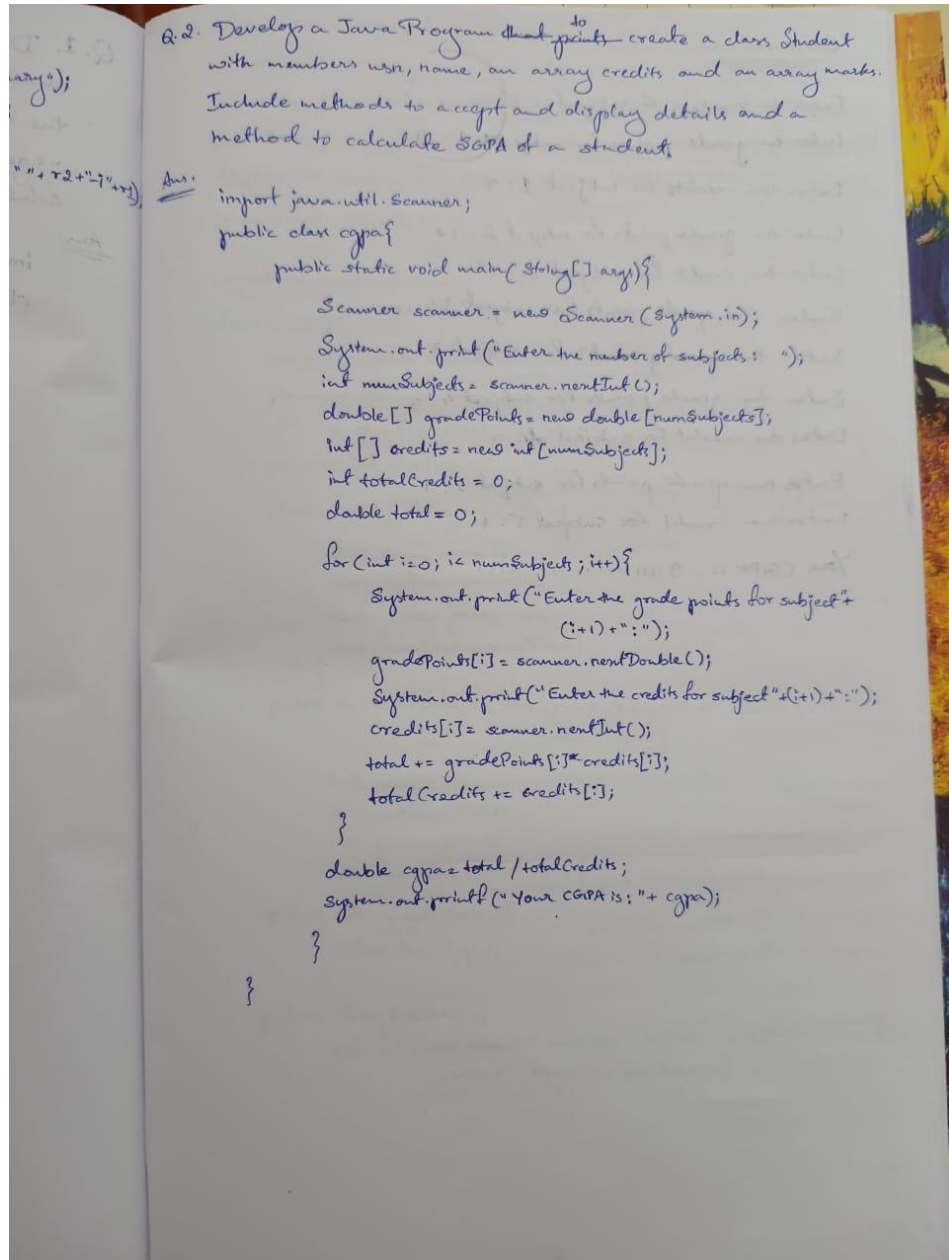 ary");
" "+ r2+"-i"+r3);
Q.2. Develop a Java Program that prints to create a class Student
with members usn, name, an array credits and an array marks.
Include methods to accept and display details and a
method to calculate SGPA of a student.
Ans.
import java.util.Scanner;
public class cgpa{
public static void main(String[] args){
Scanner scanner = new Scanner (System.in);
System.out.print ("Enter the number of subjects: ");
int numSubjects = scanner.nextInt();
double[] gradePoints = new double [numSubjects];
int[] credits = new int [numSubjects];
int totalCredits = 0;
double total = 0;
for (int i=0; i< numSubjects; i++){
System.out.print ("Enter the grade points for subject"+
(i+1)+":");
gradePoints[i] = scanner.nextDouble();
System.out.print("Enter the credits for subject"+(i+1)+":");
credits[i] = scanner.nextInt();
total += gradePoints[i]*credits[i];
totalCredits += credits[i];
}
double cgpa = total / totalCredits;
System.out.printf ("Your CGPA is: "+ cgpa);
}
}